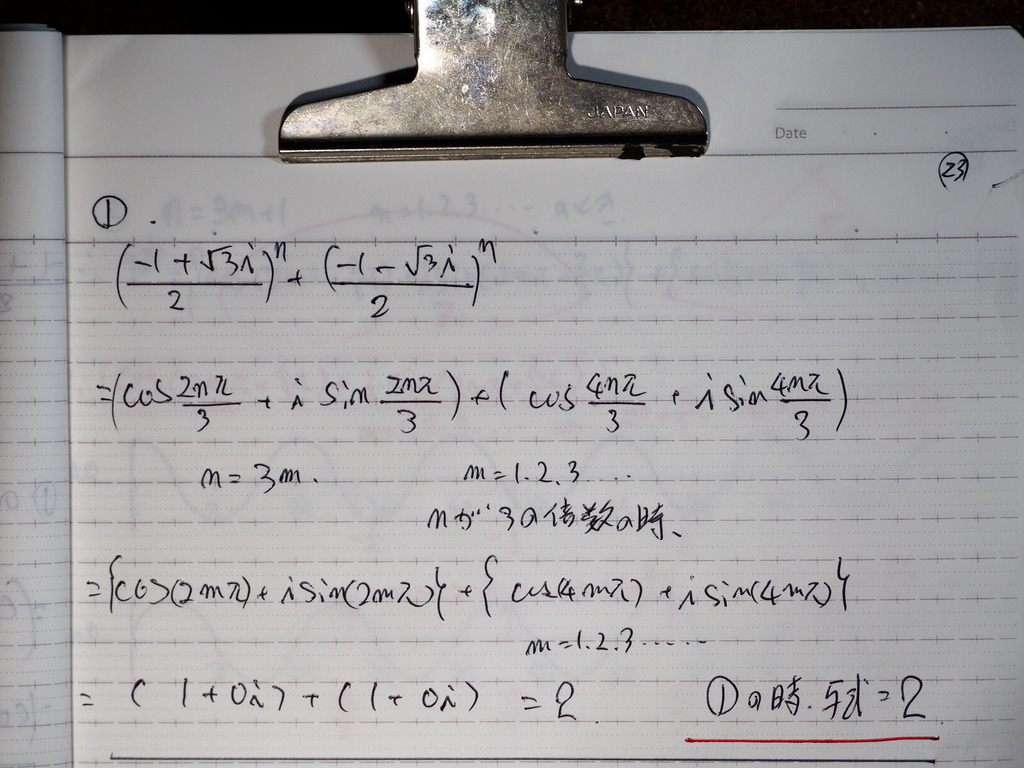 JAPAN
Date
㉓
① .
(-1+√3i / 2)^n + (-1-√3i / 2)^n
=(cos 2nπ/3 + i sin 2nπ/3) + (cos 4nπ/3 + i sin 4nπ/3)
n=3m. m=1.2.3.....
nが3の倍数の時、
={cos(2mπ)+ i sin(2mπ)} + {cos(4mπ) + i sin(4mπ)}
m=1.2.3......
= (1+0i) + (1+0i) = 2
①の時.与式=2